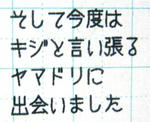 そして今度は
キジと言い張る
ヤマドリに
出会いました